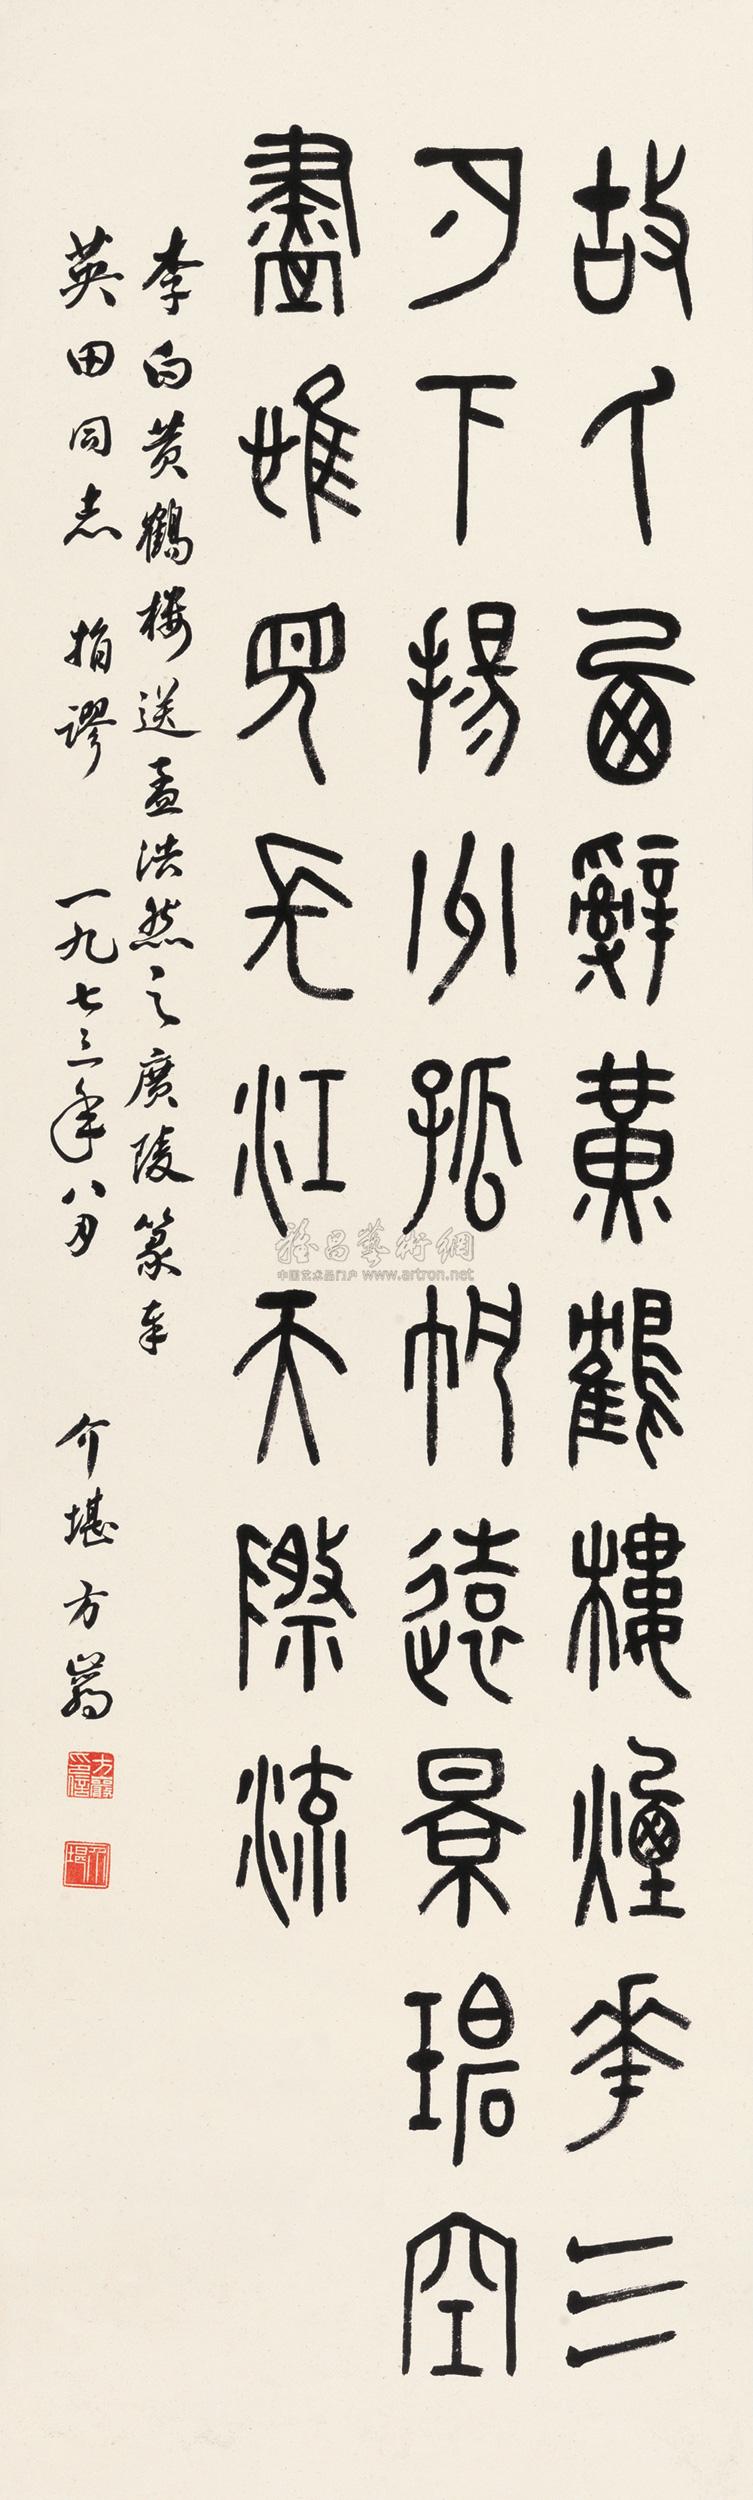 故人西辭黃鶴樓煙華三
月下揚州孤帆遠景碧空
盡唯見无江天際流
李白黄鶴楼送孟浩然之廣陵篆奉
英田同志 指謬 一九七三年八月 介堪方巖
方巖印信
介堪
雅昌藝術網
中国艺术品门户 www.artron.net